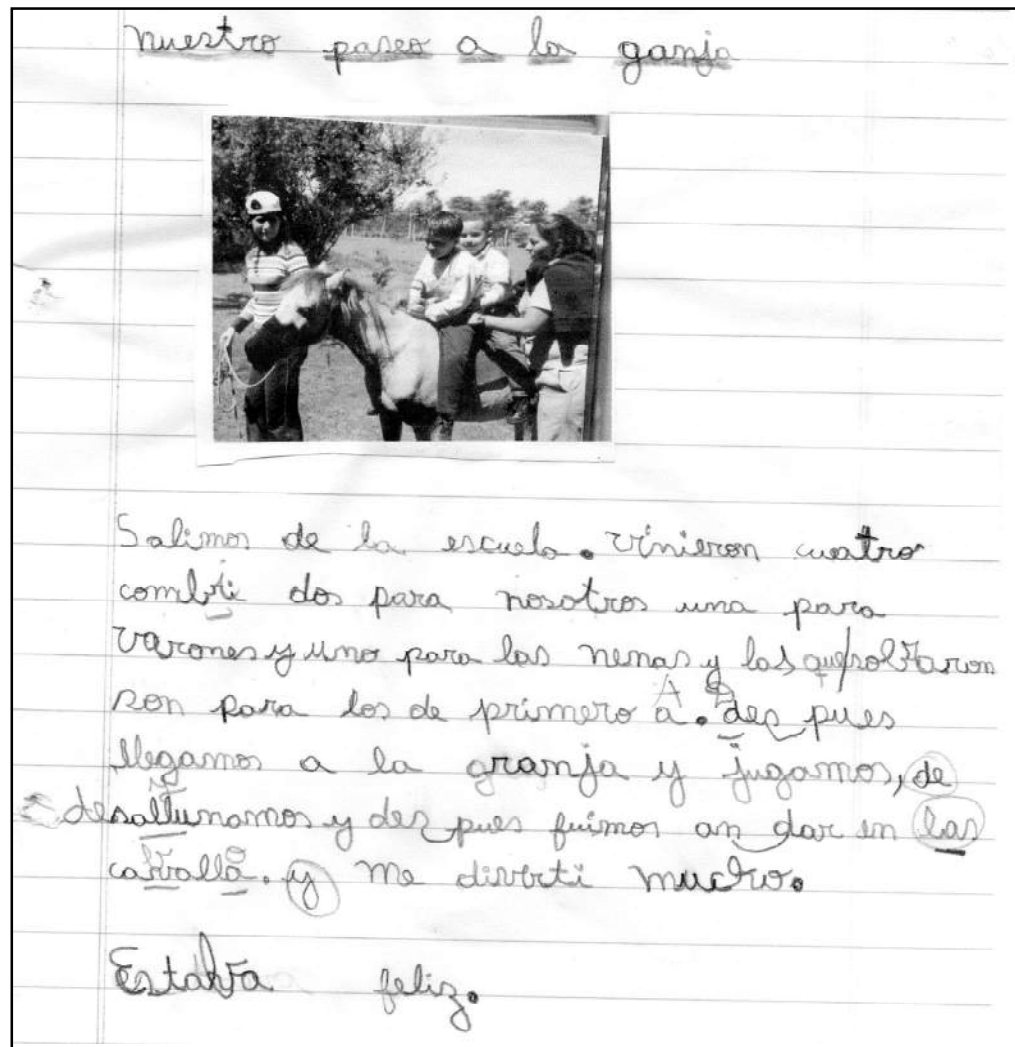 nuestro paseo a la ganja
Salimos de la escuela. vinieron cuatro
combi dos para nosotros una para
varones y uno para las nenas y las que sobraron
son para los de primero A. des pues
llegamos a la granja y jugamos, de
desallunamos y des pues fuimos an dar en las
caballo. y me diverti mucho.
Estaba feliz.